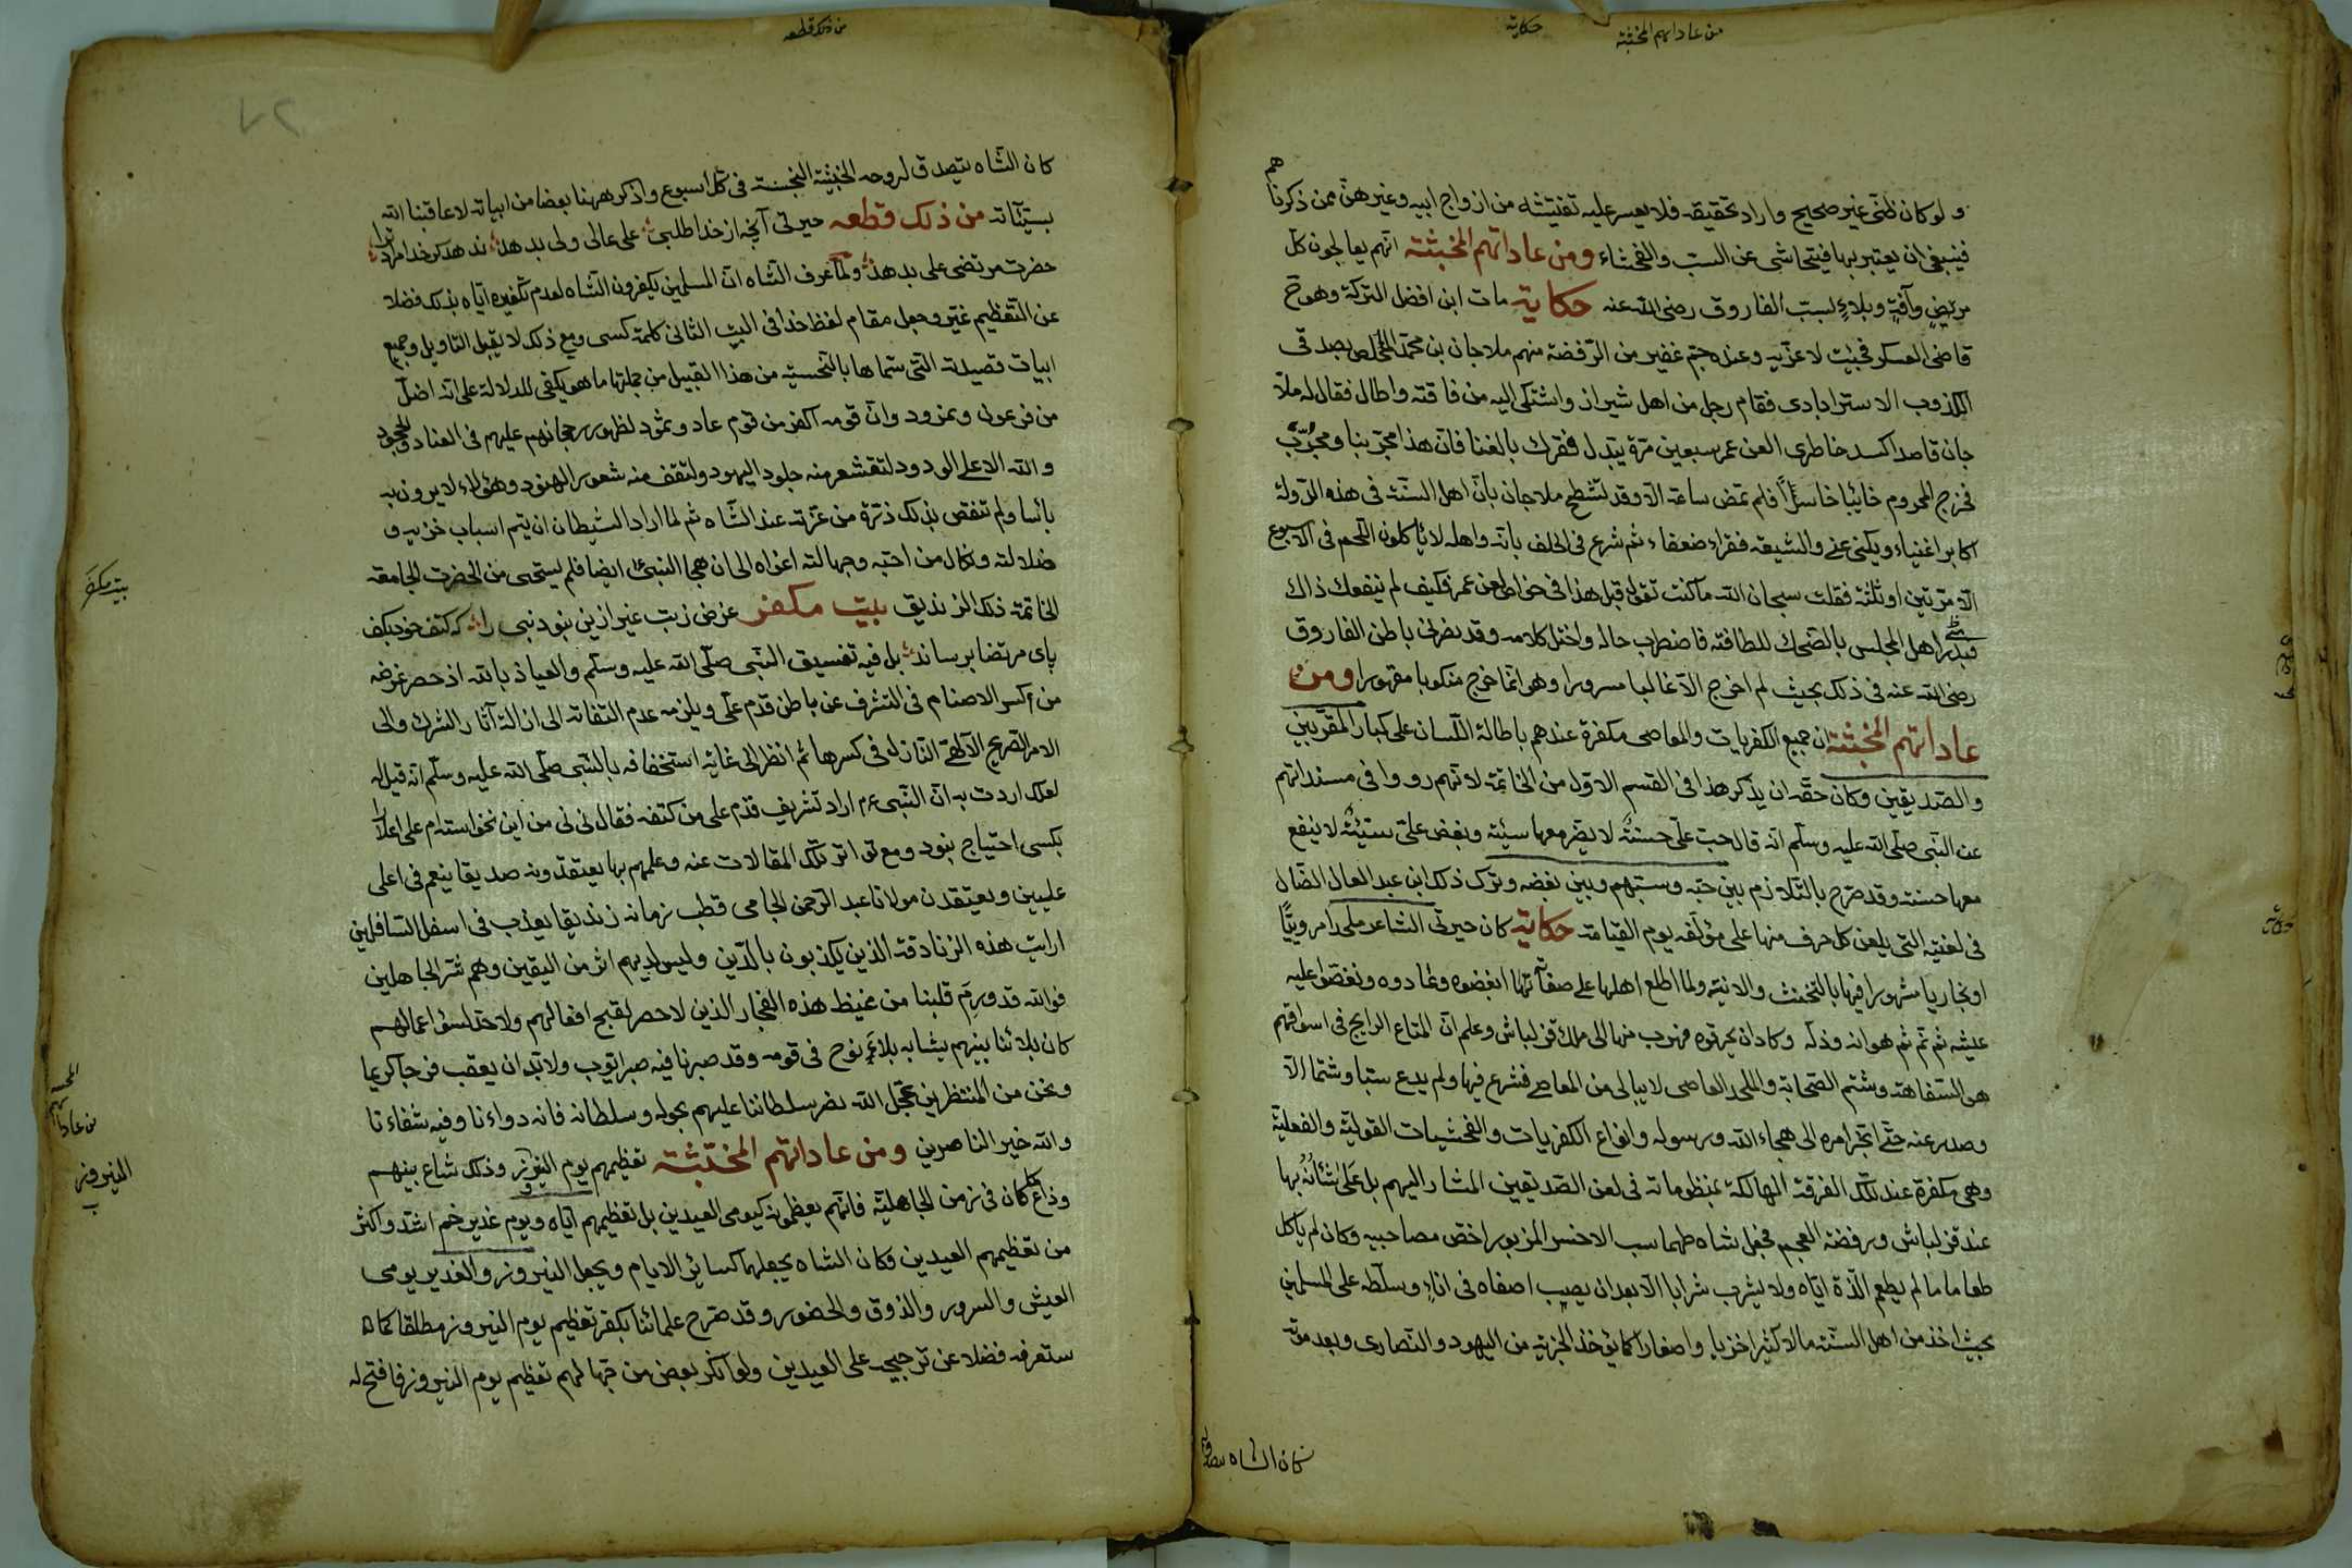 من عاداتهم المخبثة
حكاية
ولو كان ظني غير صحيح واراد تحقيقه فلا يعسر عليه تفتيشه من ازواج ابيه وغيرهن ممن ذكرناهم
فينبغي ان يعتبر بها فيتحاشى عن السب والفحشاء ومن عاداتهم المخبثة انهم يعالجون كل
مريض وآفة وبلاء لسب الفاروق رضى الله عنه حكاية مات ابن افضل التركة وهو ح
قاضى العسكر فجيئت لاعزيه وعنده جم غفير من الرفضة منهم ملا جان بن محمد المخلص بصدقى
الكذوب الاسترابادى فقام رجل من اهل شيراز واشتكى اليه من فاقته واطال فقال له ملا
جان قاصدا كسد خاطرى العن عمر سبعين مرة يتبدل فقرك بالغنا فان هذا مجربنا ومجرب
فخرج المحروم خائبا خاسرًا فلم تمض ساعة الا وقد تشطح ملا جان بان اهل السنة فى هذه الدولة
اكابر اغنياء ويكنى عنى والشيعة فقراء ضعفاء ثم شرع فى الحلف بانه واهله لا ياكلون اللحم فى الاسبوع
الا مرتين او ثلثة فقلت سبحان الله ما كنت تقوله قبل هذا فى خواص لعن عمر فكيف لم ينفعك ذاك
فبدر اهل المجلس بالضحك للطافته فاضطرب حاله واختل كلامه وقد نصرنى باطن الفاروق
رضى الله عنه فى ذلك بحيث لم اخرج الا غالبا مسرورا وهو انما خرج منكوبا مقهورا ومن
عاداتهم المخبثة ان جميع الكفريات والمعاصى مكفرة عندهم باطالة اللسان على كبار المقربين
والصديقين وكان حقه ان يذكر هذا فى القسم الاول من الخاتمة لانهم رووا فى مسنداتهم
عن النبى صلى الله عليه وسلم انه قال حب على حسنة لا يضر معها سيئة وبغض على سيئة لا ينفع
معها حسنة وقد صرح بالتلازم بين حبه وسبهم وبين بغضه وترك ذلك ابن عبد العال الضال
فى لعنيته التى يلعن كل حرف منها على مؤلفه يوم القيامة حكاية كان حيرتى الشاعر ملحدا مرويًا
او بخاريا مشهورا فيها بالتخنث والابنة ولما اطلع اهلها على صفاتها ابغضوه وعادوه ونغصوا عليه
عيشه ثم تم ثم هوانه وذله وكاد ان يحرقوه فهرب منها الى ملك قزلباش وعلم ان المتاع الرايج فى اسواقهم
هو السفاهة وشتم الصحابة والملحد العاصى لا يبالى من المعاصى فشرع فيها ولم يدع سبا وشتما الا
وصدر عنه حتى انجر امره الى هجاء الله ورسوله وانواع الكفريات والفحشيات القولية والفعلية
وهى مكفرة عند تلك الفرقة الهالكة بمنظوماته فى لعن الصديقين المشار اليهم بل على شأنه بها
عند قزلباش ورفضة العجم فجعل شاه طهماسب الاخس المزبور اخص مصاحبيه وكان لم ياكل
طعاما ما لم يطعم الذة اياه ولا يشرب شرابا الا بعد ان يصيب اصفاه فى اناء وسلطه على المسلمين
بحيث اخذ من اهل السنة مالا كثيرا خزيا واصغارا كما يؤخذ الجزية من اليهود والنصارى وبعد موته
كان الشاه يتصدق
حكاية
من ذلك قطعه
كان الشاه يتصدق لروحه الخبيثة النجسة فى كل اسبوع واذكر ههنا بعضا من ابياته لا عاقبنا الله
بسيئاته من ذلك قطعه حيرتى آنچه از خدا طلبى على عالى ولى بدهد ندهد كر خدا مراد ترا
حضرت مرتضى على بدهد ولما عرف الشاه ان المسلمين يكفرون الشاه لعدم تكفيره اياه بذلك فضلا
عن التعظيم غير وجعل مقام لفظ خدا فى البيت الثانى كلمة كسى ومع ذلك لا يقبل التاويل وجميع
ابيات قصيدته التى سماها بالنحسية من هذا القبيل من جملتها ما هو يكفى للدلالة على انه اضل
من فرعون ونمرود وان قومه اكفر من قوم عاد وثمود لظهور رجحانهم عليهم فى العناد والجحود
والله الاعلى الودود لتقشعر منه جلود اليهود ولتقف منه شعور الهنود وهؤلاء لا يرون به
بائسا ولم تنقص بذلك ذرة من عزته عند الشاه ثم لما اراد الشيطان ان يتم اسباب خزيه و
ضلالته ونكال من احبه وجهالته اغواه الى ان هجا النبى ايضا فلم يستحى من الحضرت الجامعة
الخاتمة ذلك الزنديق بيت مكفر غرض زبت غير ازين نبود نبى را كه كتف خود بكف
پاى مرتضا برساند بل فيه تفسيق النبى صلى الله عليه وسلم والعياذ بالله اذ حصر غرضه
من كسر الاصنام فى التشرف عن باطن قدم على ويلزمه عدم التفاته الى ازالة آثار الشرك والى
الامر الصريح الالهى النازل فى كسرها ثم انظر الى غاية استخفافه بالنبى صلى الله عليه وسلم انه قيل له
لعلك اردت به ان النبى اراد تشريف قدم على من كتفه فقال نى نى من اين نخواستم على اعلا را
بكسى احتياج نبود ومع تواتر تلك المقالات عنه وعلمهم بها يعتقدونه صديقا ينعم فى اعلى
عليين ويعتقدن مولانا عبد الرحمن الجامى قطب زمانه زنديقا يعذب فى اسفل السافلين
ارايت هذه الزنادقة الذين يكذبون بالدين وليس لديهم اثر من اليقين وهم شر الجاهلين
فوالله قد ورم قلبنا من غيظ هذه الفجار الذين لا حصر لقبح افعالهم ولا حد لسؤ اعمالهم
كان بلائنا بينهم يشابه بلاء نوح فى قومه وقد صبرنا فيه صبر ايوب ولا بد ان يعقب فرجا كريما
ونحن من المنتظرين عجل الله نصر سلطاننا عليهم بحوله وسلطانه فانه دواءنا وفيه شفاءنا
والله خير الناصرين ومن عاداتهم المخبثة تعظيمهم يوم النيروز وذلك شاع بينهم
وذاع كما كان فى زمن الجاهلية فانهم يعظمونه كيومى العيدين بل تعظيمهم اياه ويوم غدير خم اشد واكثر
من تعظيمهم العيدين وكان الشاه يجعلهما كسائر الايام ويجعل النيروز والغدير يومى
العيش والسرور والذوق والحضور وقد صرح علمائنا بكفر تعظيم يوم النيروز مطلقا كما
ستعرفه فضلا عن ترجيحه على العيدين ولو انكر بعض من جهالهم تعظيم يوم النيروز فافتح له
بيت مكفر
من عاداتهم المخبثة
النيروز